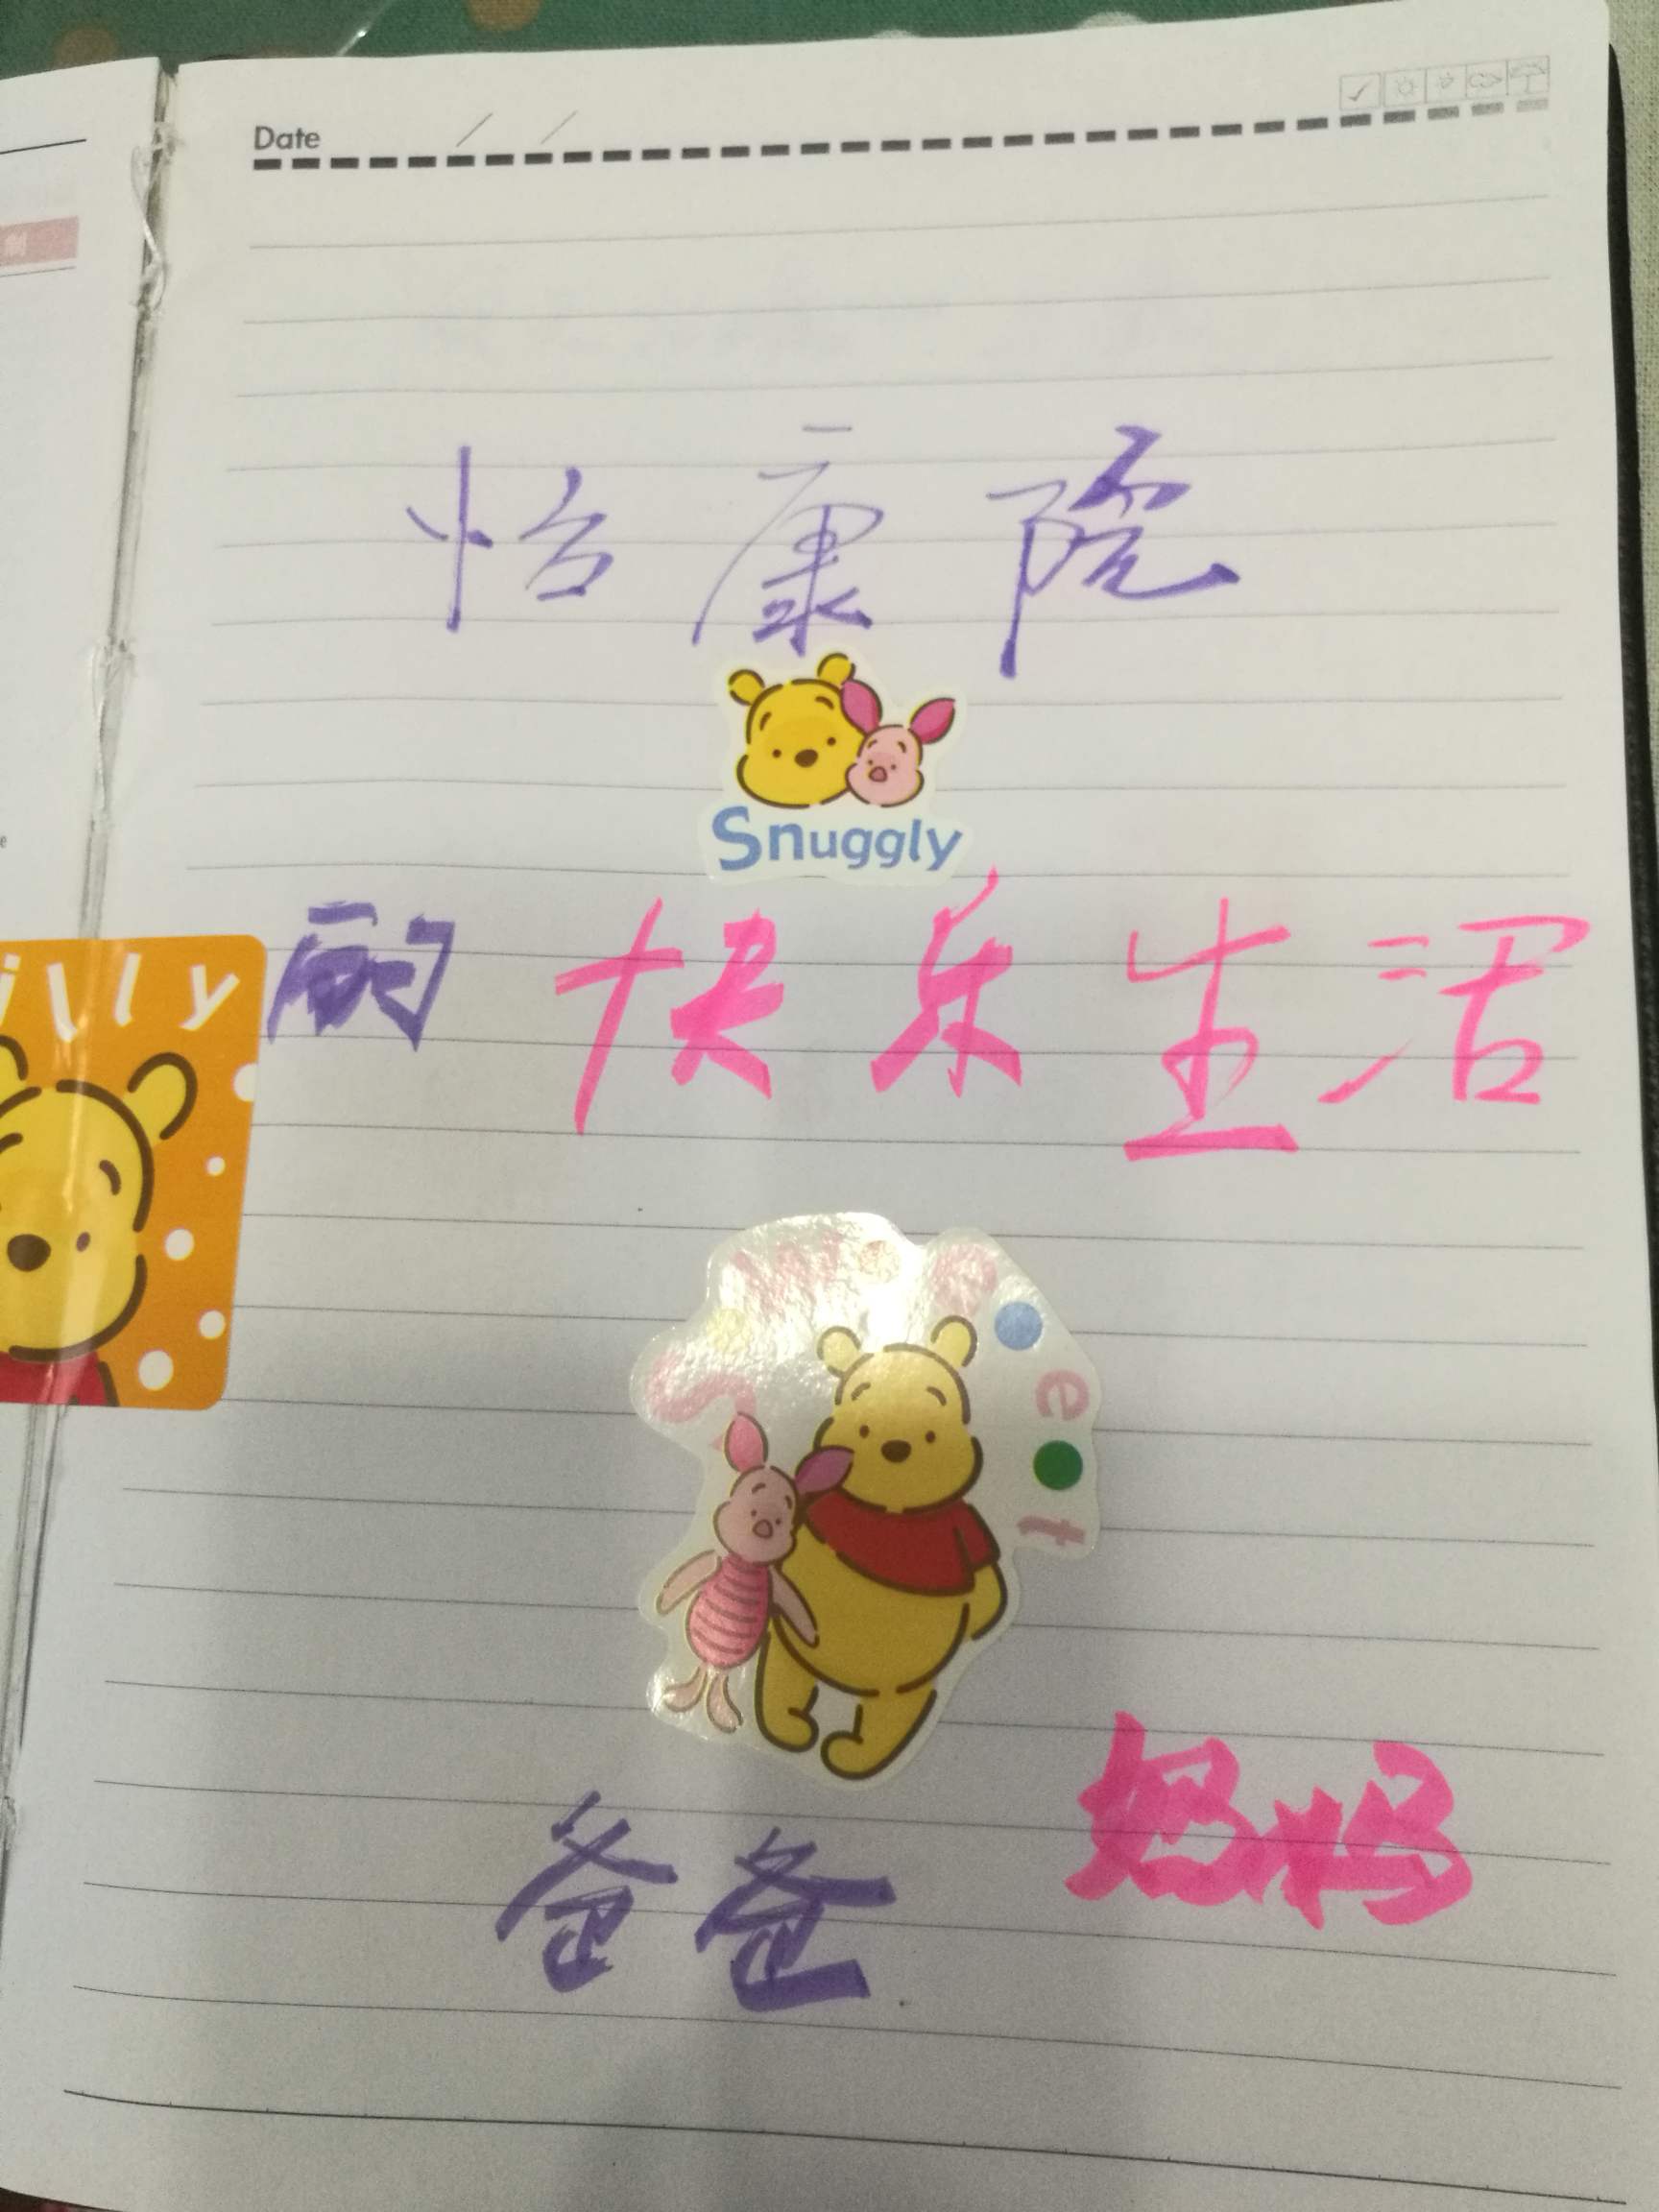 Date / /
怡康院
Snuggly
的快乐生活
illy
Sweet
爸爸 妈妈